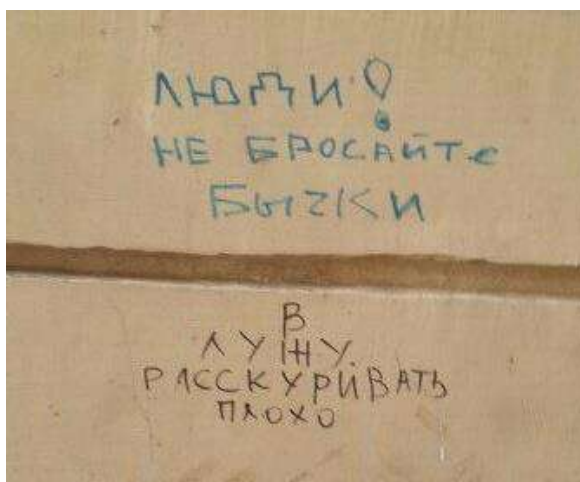 ЛЮДИ!
НЕ БРОСАЙТЕ
БЫЧКИ
В
ЛУЖУ.
РАССКУРИВАТЬ
ПЛОХО